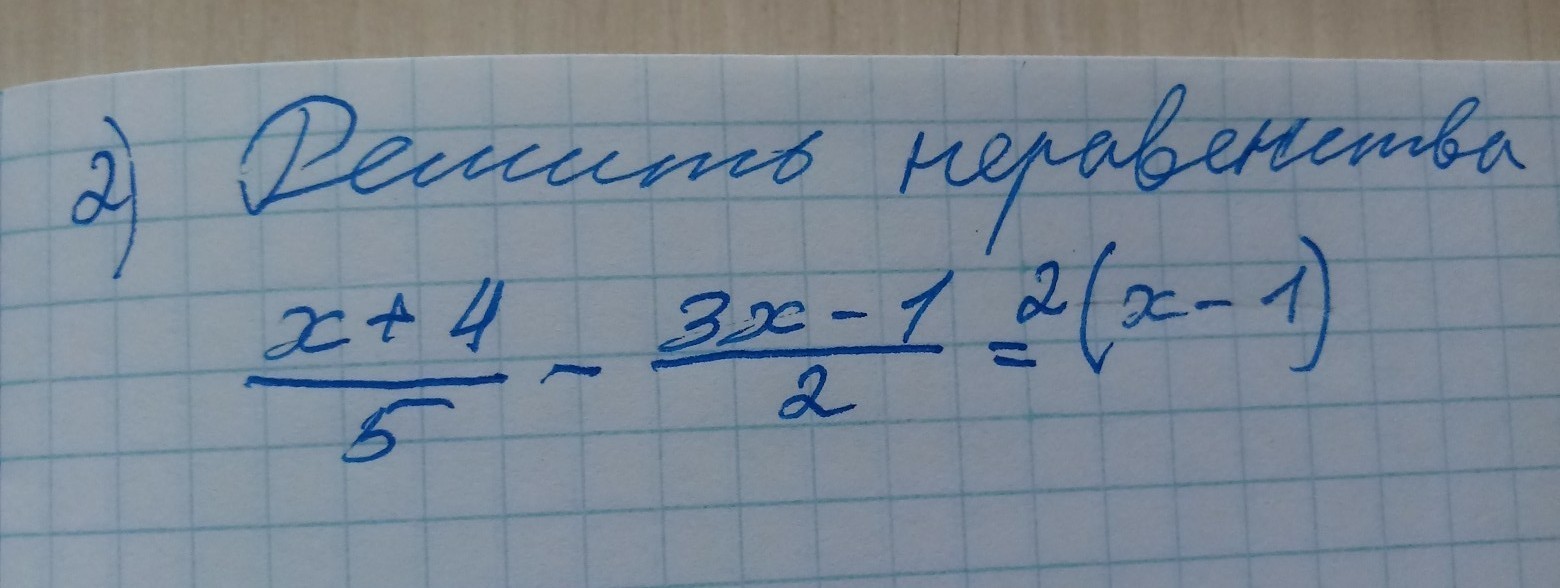 2) Решить неравенства
x + 4 / 5 - 3x - 1 / 2 = 2(x - 1)